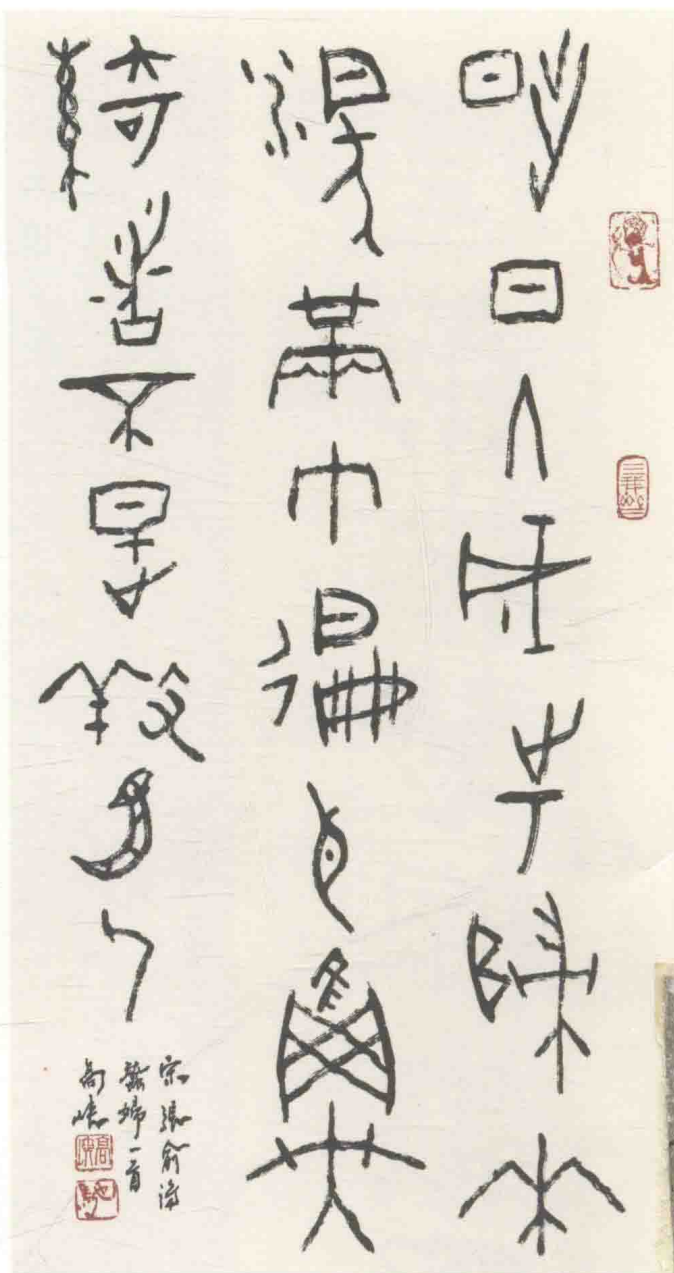 昨日入城市歸來
淚滿巾遍身羅
綺者不是養蠶人
宋張俞詩
蠶婦一首